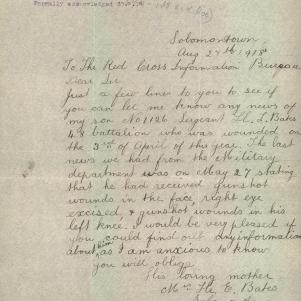 Formally acknowledged
Solomontown
Aug 27th 1918
To The Red Cross Information Bureau
Dear Sir
Just a few lines to you to see if
you can let me know any news of
my son No 1126 Sergeant H. L. Bates
48 battalion who was wounded on
the 3rd of April of this year. The last
news we had from the Military
department was on May 27 stating
that he had received gunshot
wounds in the face, right eye
excised, & gunshot wounds in his
left knee. I would be very pleased if
you could find out any information
about him, as I am anxious to know
you will oblige
His loving mother
Mrs E. Bates